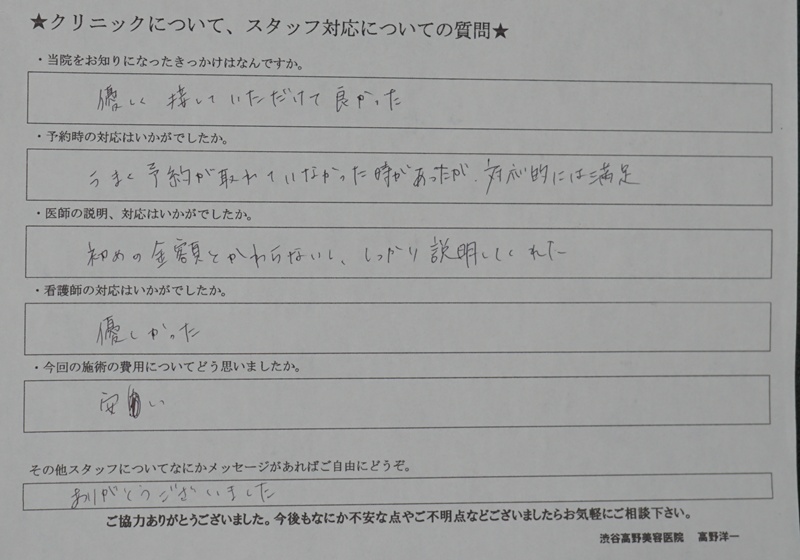 ★クリニックについて、スタッフ対応についての質問★
・当院をお知りになったきっかけはなんですか。
優しく接していただけて良かった
・予約時の対応はいかがでしたか。
うまく予約が取れていなかった時があったが、対応的には満足
・医師の説明、対応はいかがでしたか。
初めの金額とかわらないし、しっかり説明してくれた
・看護師の対応はいかがでしたか。
優しかった
・今回の施術の費用についてどう思いましたか。
安い
その他スタッフについてなにかメッセージがあればご自由にどうぞ。
ありがとうございました
ご協力ありがとうございました。今後もなにか不安な点やご不明点などございましたらお気軽にご相談下さい。
渋谷高野美容医院　高野洋一